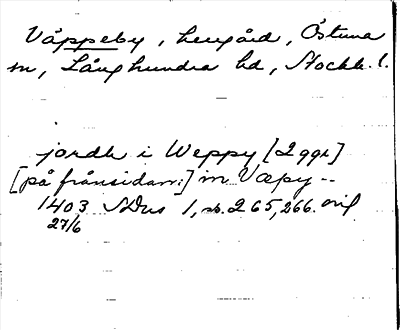 Våppeby, herrgård, Östuna
sn, Långhundra hd, Stockh. l.
jordh i Weppy [2 ggr]
[på frånsidan:] in Væpy --
1403 SDns 1, s. 265, 266. orig
27/6